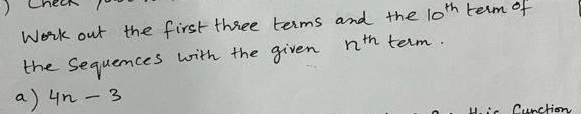 ) Check
Work out the first three terms and the 10th term of
the Sequences with the given nth term.
a) 4n - 3
Cunction